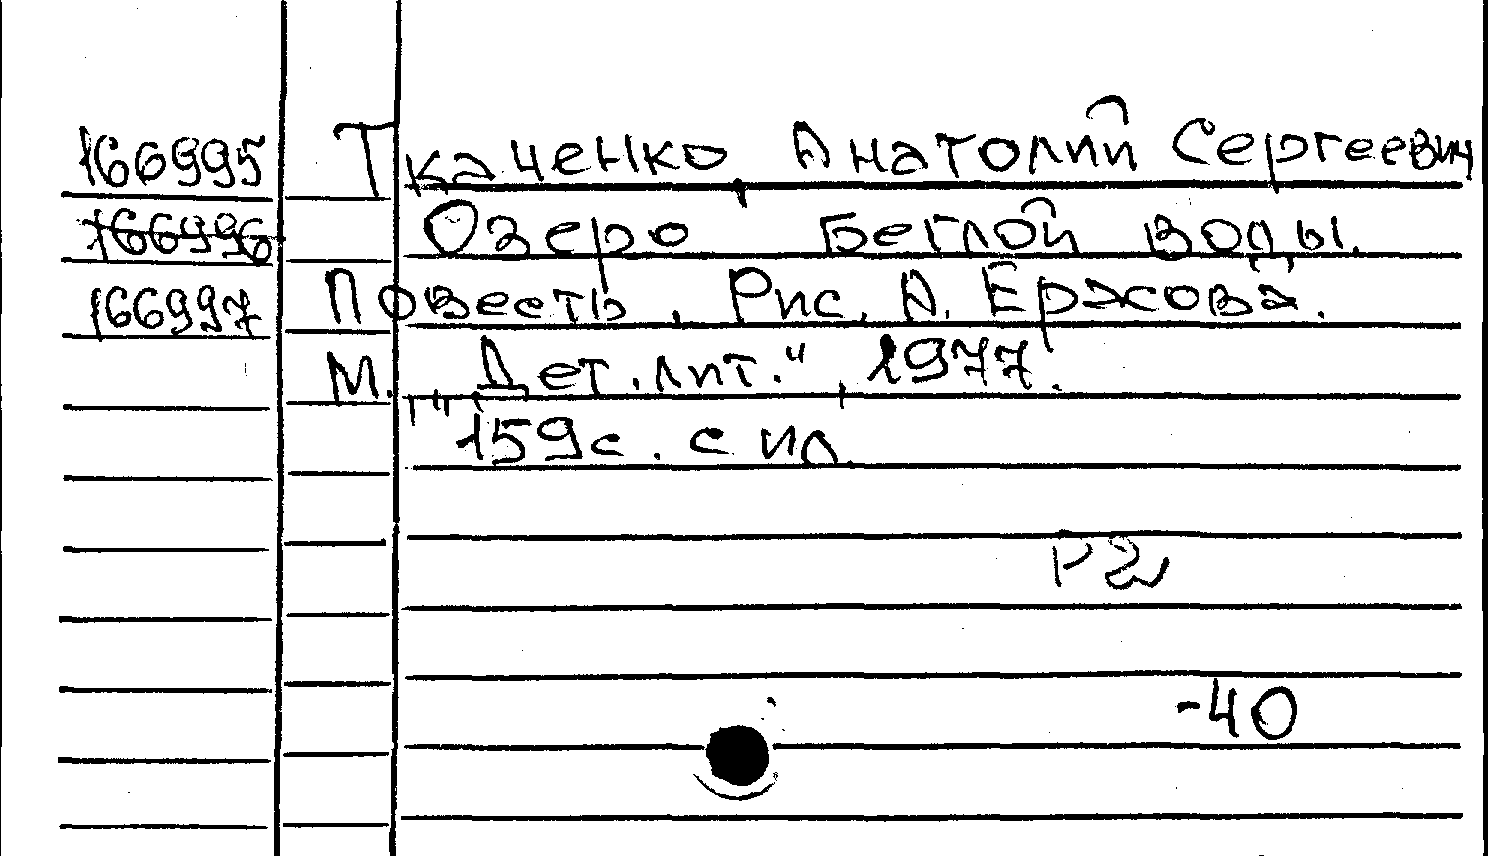 166995 Ткаченко, Анатолий Сергеевич
166996 Озеро Беглой воды.
166997 Повесть. Рис. А. Ержова.
М., "Дет. лит.", 1977.
159с. с ил.
Р2
-40